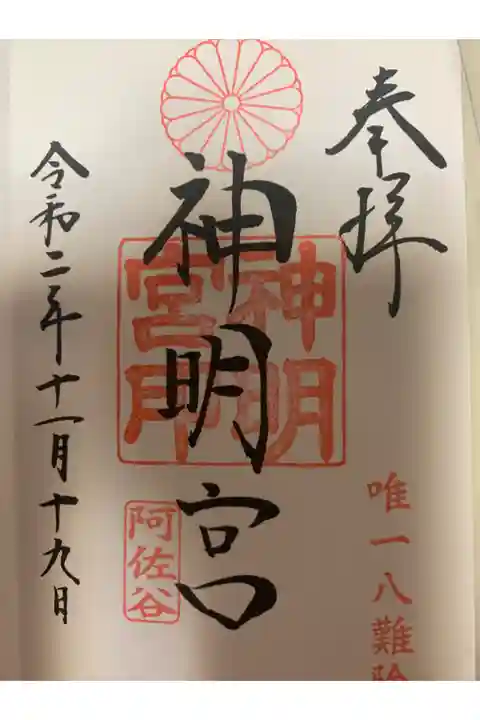 奉拝
唯一八難除
神明宮
神明宮印
阿佐谷
令和二年十一月十九日